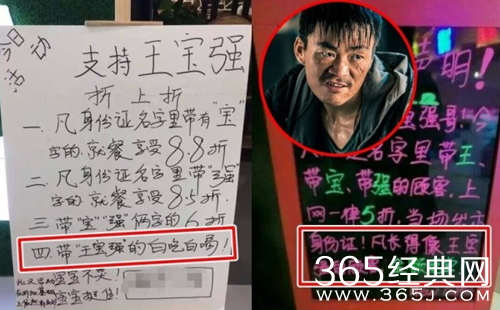 今日
活动
支持王宝强
折上折
一、凡身份证名字里带有"宝"
字的,就餐享受8.8折
二、凡身份证名字里带"强"
字的,就餐享受8.5折
三、带"宝""强"俩字的6折
四、带"王宝强"的白吃白喝!
宝宝不哭!
声明!
宝强哥!今
名字里带王、
带宝、带强的顾客,上
网一律5折,当场出示
身份证!凡长得像王宝
365经典网
www.365J.com